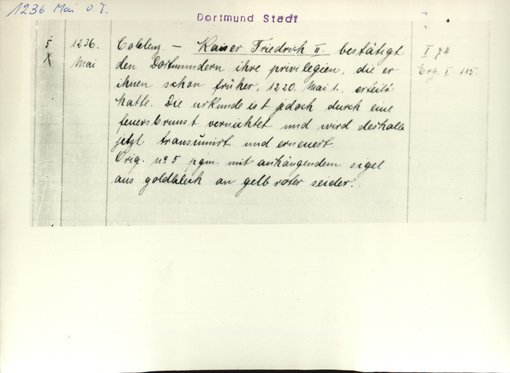 1236 Mai O.T.
Dortmund Stadt
5 1236. Coblenz – Kaiser Friedrich II. bestätigt I 74
X Mai den Dortmundern ihre privilegien, die er Erg. I. 115.
ihnen schon früher, 1220. Mai 1. erteilt
hatte. Die urkunde ist jedoch durch eine
feuersbrunst vernichtet und wird deshalb
jetzt transsumirt und erneuert
Orig. no 5 pgm. mit anhängendem sigel
aus goldblech an gelb roter seide.